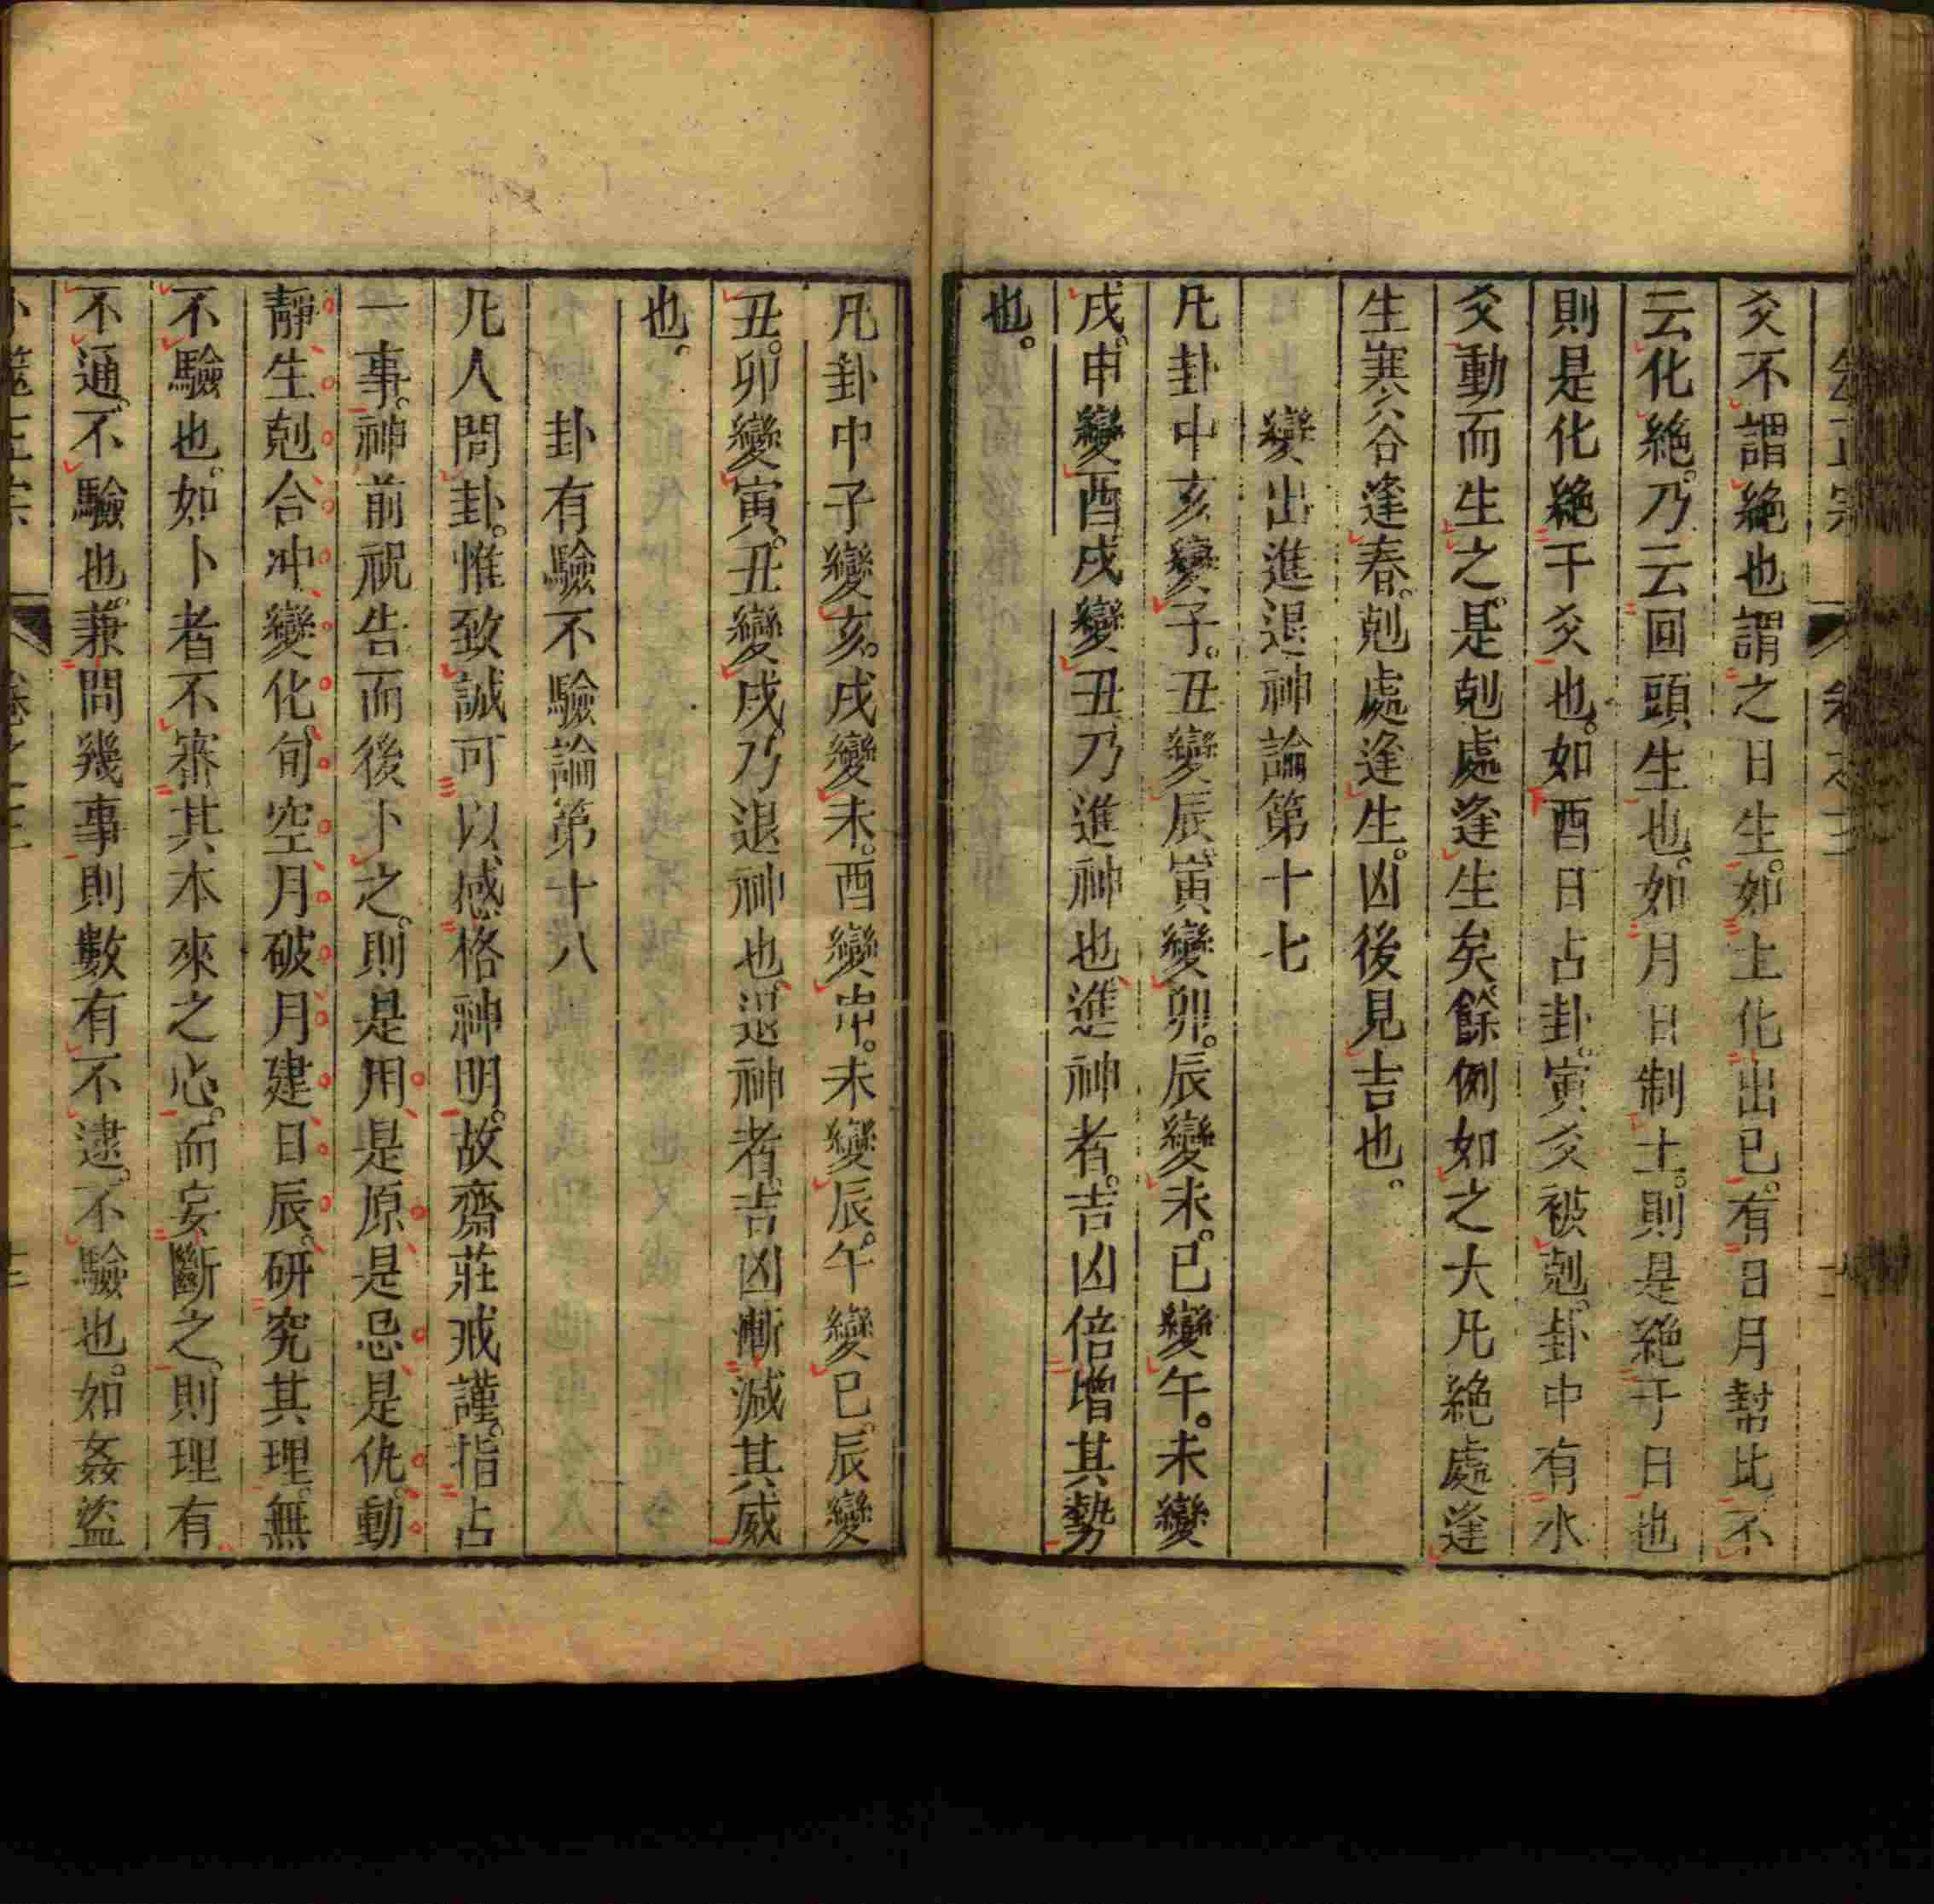 爻不謂絶也謂之日生。如土化出巳。有日月幇比不
云化絶。乃云回頭生也。如月日制土。則是絶于日也
則是化絶于爻也。如酉日占卦。寅爻被剋。卦中有水
爻動而生之。是剋處逢生矣。餘例如之大凡絶處逢
生寒谷逢春。剋處逢生。凶後見吉也。
變出進退神論第十七
凡卦中亥變子。丑變辰。寅變卯。辰變未。巳變午。未變
戌。申變酉。戌變丑。乃進神也。進神者。吉凶倍增其勢
也。
凡卦中子變亥。戌變未。酉變申。未變辰。午變巳。辰變
丑。卯變寅。丑變戌。乃退神也。退神者。吉凶漸減其威
也。
卦有驗不驗論第十八
凡人問卦。惟致誠可以感格神明。故齋莊戒謹。指占
一事。神前祝告而後卜之。則是用是原是忌是仇。動
靜生剋合冲變化。旬空月破月建日辰。研究其理。無
不驗也。如卜者不審其本來之心。而妄斷之。則理有
不通。不驗也。兼問幾事則數有不逮。不驗也。如姦盜
卜筮正宗 卷之三